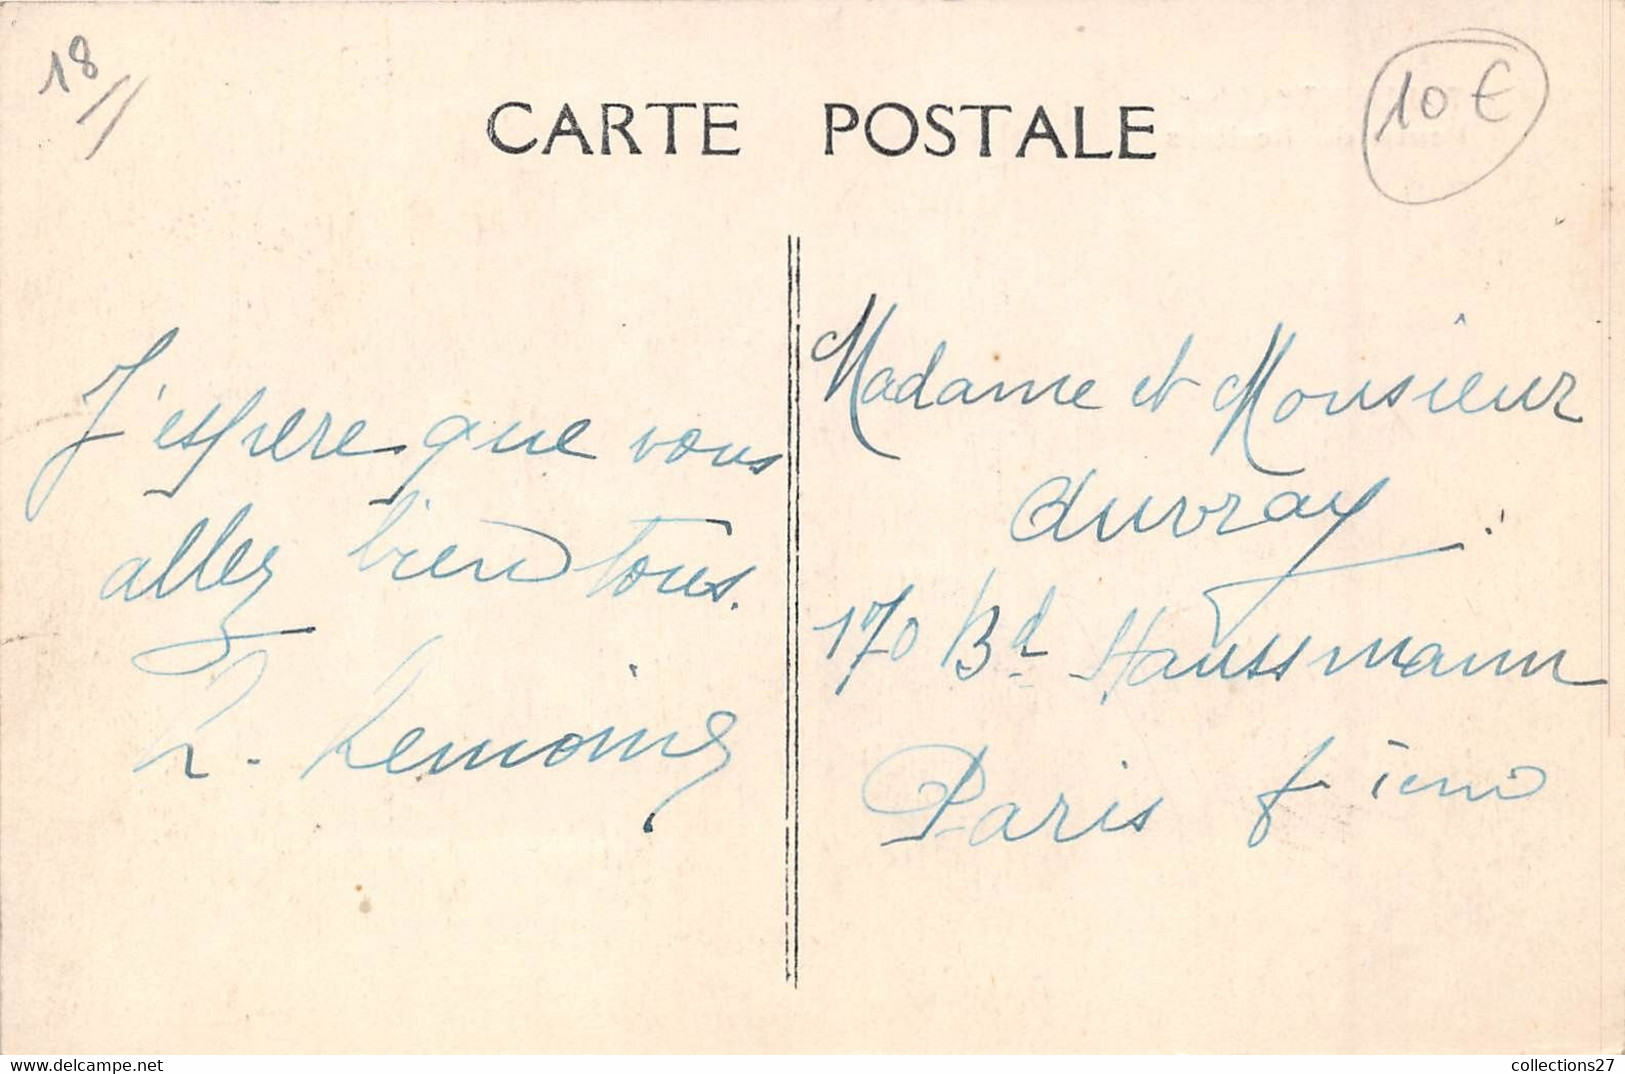 18
CARTE POSTALE
10 €
J'espere que vous
allez bien tous.
Lemoine
Madame et Monsieur
Auvray
170 Bd Haussmann
Paris 8 ième
https://www.delcampe.net
collections27